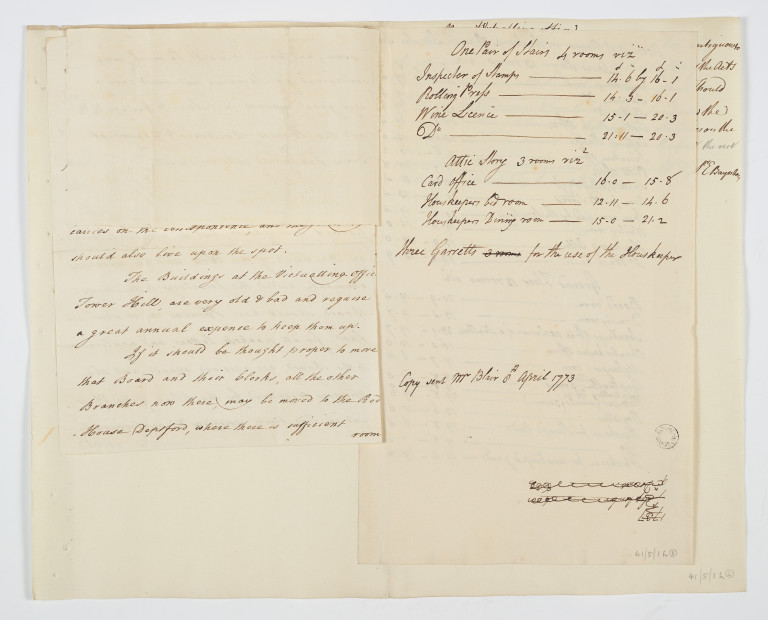 carries on the correspondence, and
should also live upon the spot.
The Buildings at the Victualling office
Tower Hill, are very old & bad and require
a great annual expence to keep them up.
If it should be thought proper to move
that Board and their Clerks, all the other
Branches now there, may be moved to the Red
House Deptford, where there is sufficient
room
One Pair of Stairs 4 rooms vizt
Inspector of Stamps — 14.6 by 16-1
Rolling Press — 14-3 - 16-1
Wine Licence — 15-1 — 20.3
Do — 21-11 — 20.3
Attic Story 3 rooms vizt
Card office — 16.0 — 15-8
Houskeepers bed room — 12.11 — 14.6
Houskeepers Dining room — 15-0 — 21.2
three Garretts 3 rooms for the use of the Houskeeper
Copy sent Mr Blair 8th April 1773
41/5/1
the Acts
should
the
on the
41/5/1